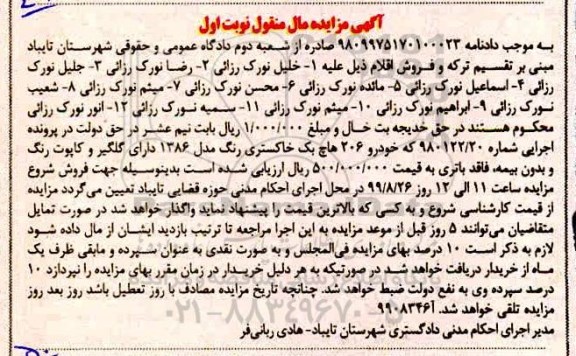 آگهی مزایده مال منقول نوبت اول
به موجب دادنامه ۹۸۰۹۹۷۵۱۷۰۱۰۰۰۲۳ صادره از شعبه دوم دادگاه عمومی و حقوقی شهرستان تایباد
مبنی بر تقسیم ترکه و فروش اقلام ذیل علیه ۱- خلیل نورک رزائی ۲- رضا نورک رزائی ۳- جلیل نورک
رزائی ۴- اسماعیل نورک رزائی ۵- مائده نورک رزائی ۶- محسن نورک رزائی ۷- میثم نورک رزائی ۸- شعیب
نورک رزائی ۹- ابراهیم نورک رزائی ۱۰- میثم نورک رزائی ۱۱- سمیه نورک رزائی ۱۲- انور نورک رزائی
محکوم هستند در حق خدیجه بت خال و مبلغ ۱/۰۰۰/۰۰۰ ریال بابت نیم عشر در حق دولت در پرونده
اجرایی شماره ۹۸۰۱۲۲/۲۰ که خودرو ۲۰۶ هاچ بک خاکستری رنگ مدل ۱۳۸۶ دارای گلگیر و کاپوت رنگ
و بدون بیمه، فاقد باتری به قیمت ۵۰۰/۰۰۰/۰۰۰ ریال ارزیابی شده است بدینوسیله جهت فروش شروع
مزایده ساعت ۱۱ الی ۱۲ روز ۹۹/۸/۲۶ در محل اجرای احکام مدنی حوزه قضایی تایباد تعیین می‌گردد مزایده
از قیمت کارشناسی شروع و به کسی که بالاترین قیمت را پیشنهاد نماید واگذار خواهد شد در صورت تمایل
متقاضیان می‌توانند ۵ روز قبل از موعد مزایده به این اجرا مراجعه تا ترتیب بازدید ایشان از مال داده شود
لازم به ذکر است ۱۰ درصد بهای مزایده فی‌المجلس و به صورت نقدی به عنوان سپرده و مابقی ظرف یک
ماه از خریدار دریافت خواهد شد در صورتیکه به هر دلیل خریدار در زمان مقرر بهای مزایده را نپردازد ۱۰
درصد سپرده وی به نفع دولت ضبط خواهد شد. چنانچه تاریخ مزایده مصادف با روز تعطیل باشد روز بعد روز
مزایده تلقی خواهد شد. ۹۹۰۸۳۴۶۱
مدیر اجرای احکام مدنی دادگستری شهرستان تایباد- هادی ربانی‌فر
۰۲۱-۸۸۳۴۹۶۷۰-۵